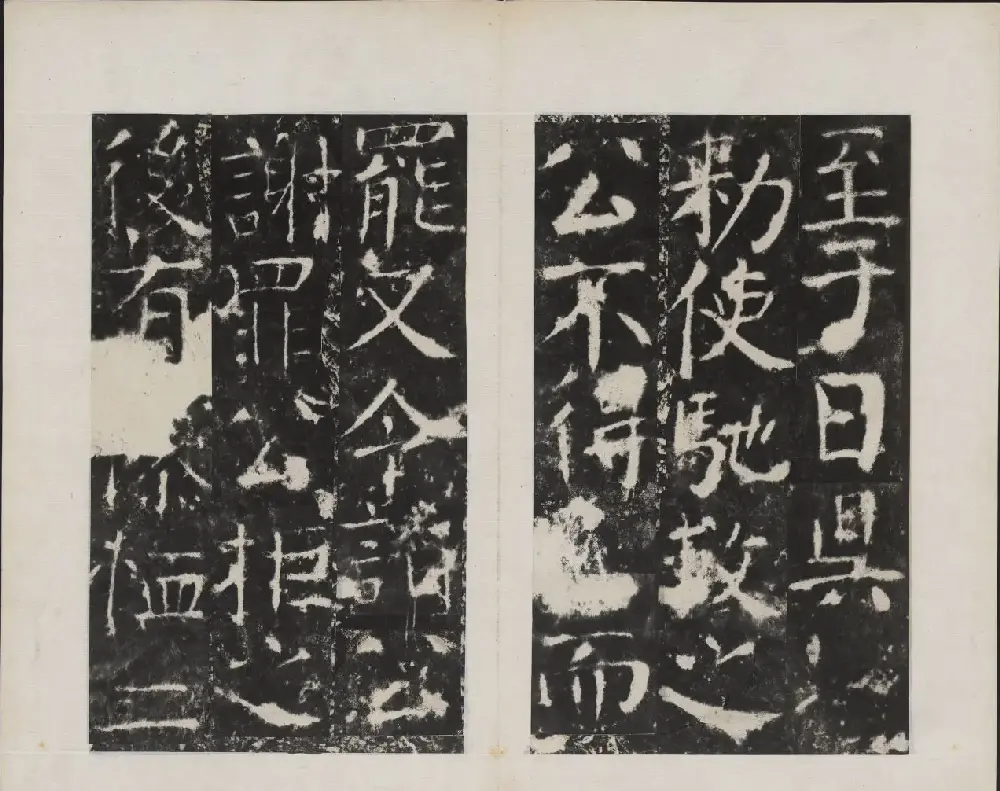 至于日
勑使馳救之
公不得而
罷又令詣公
謝罪公拒之
後有